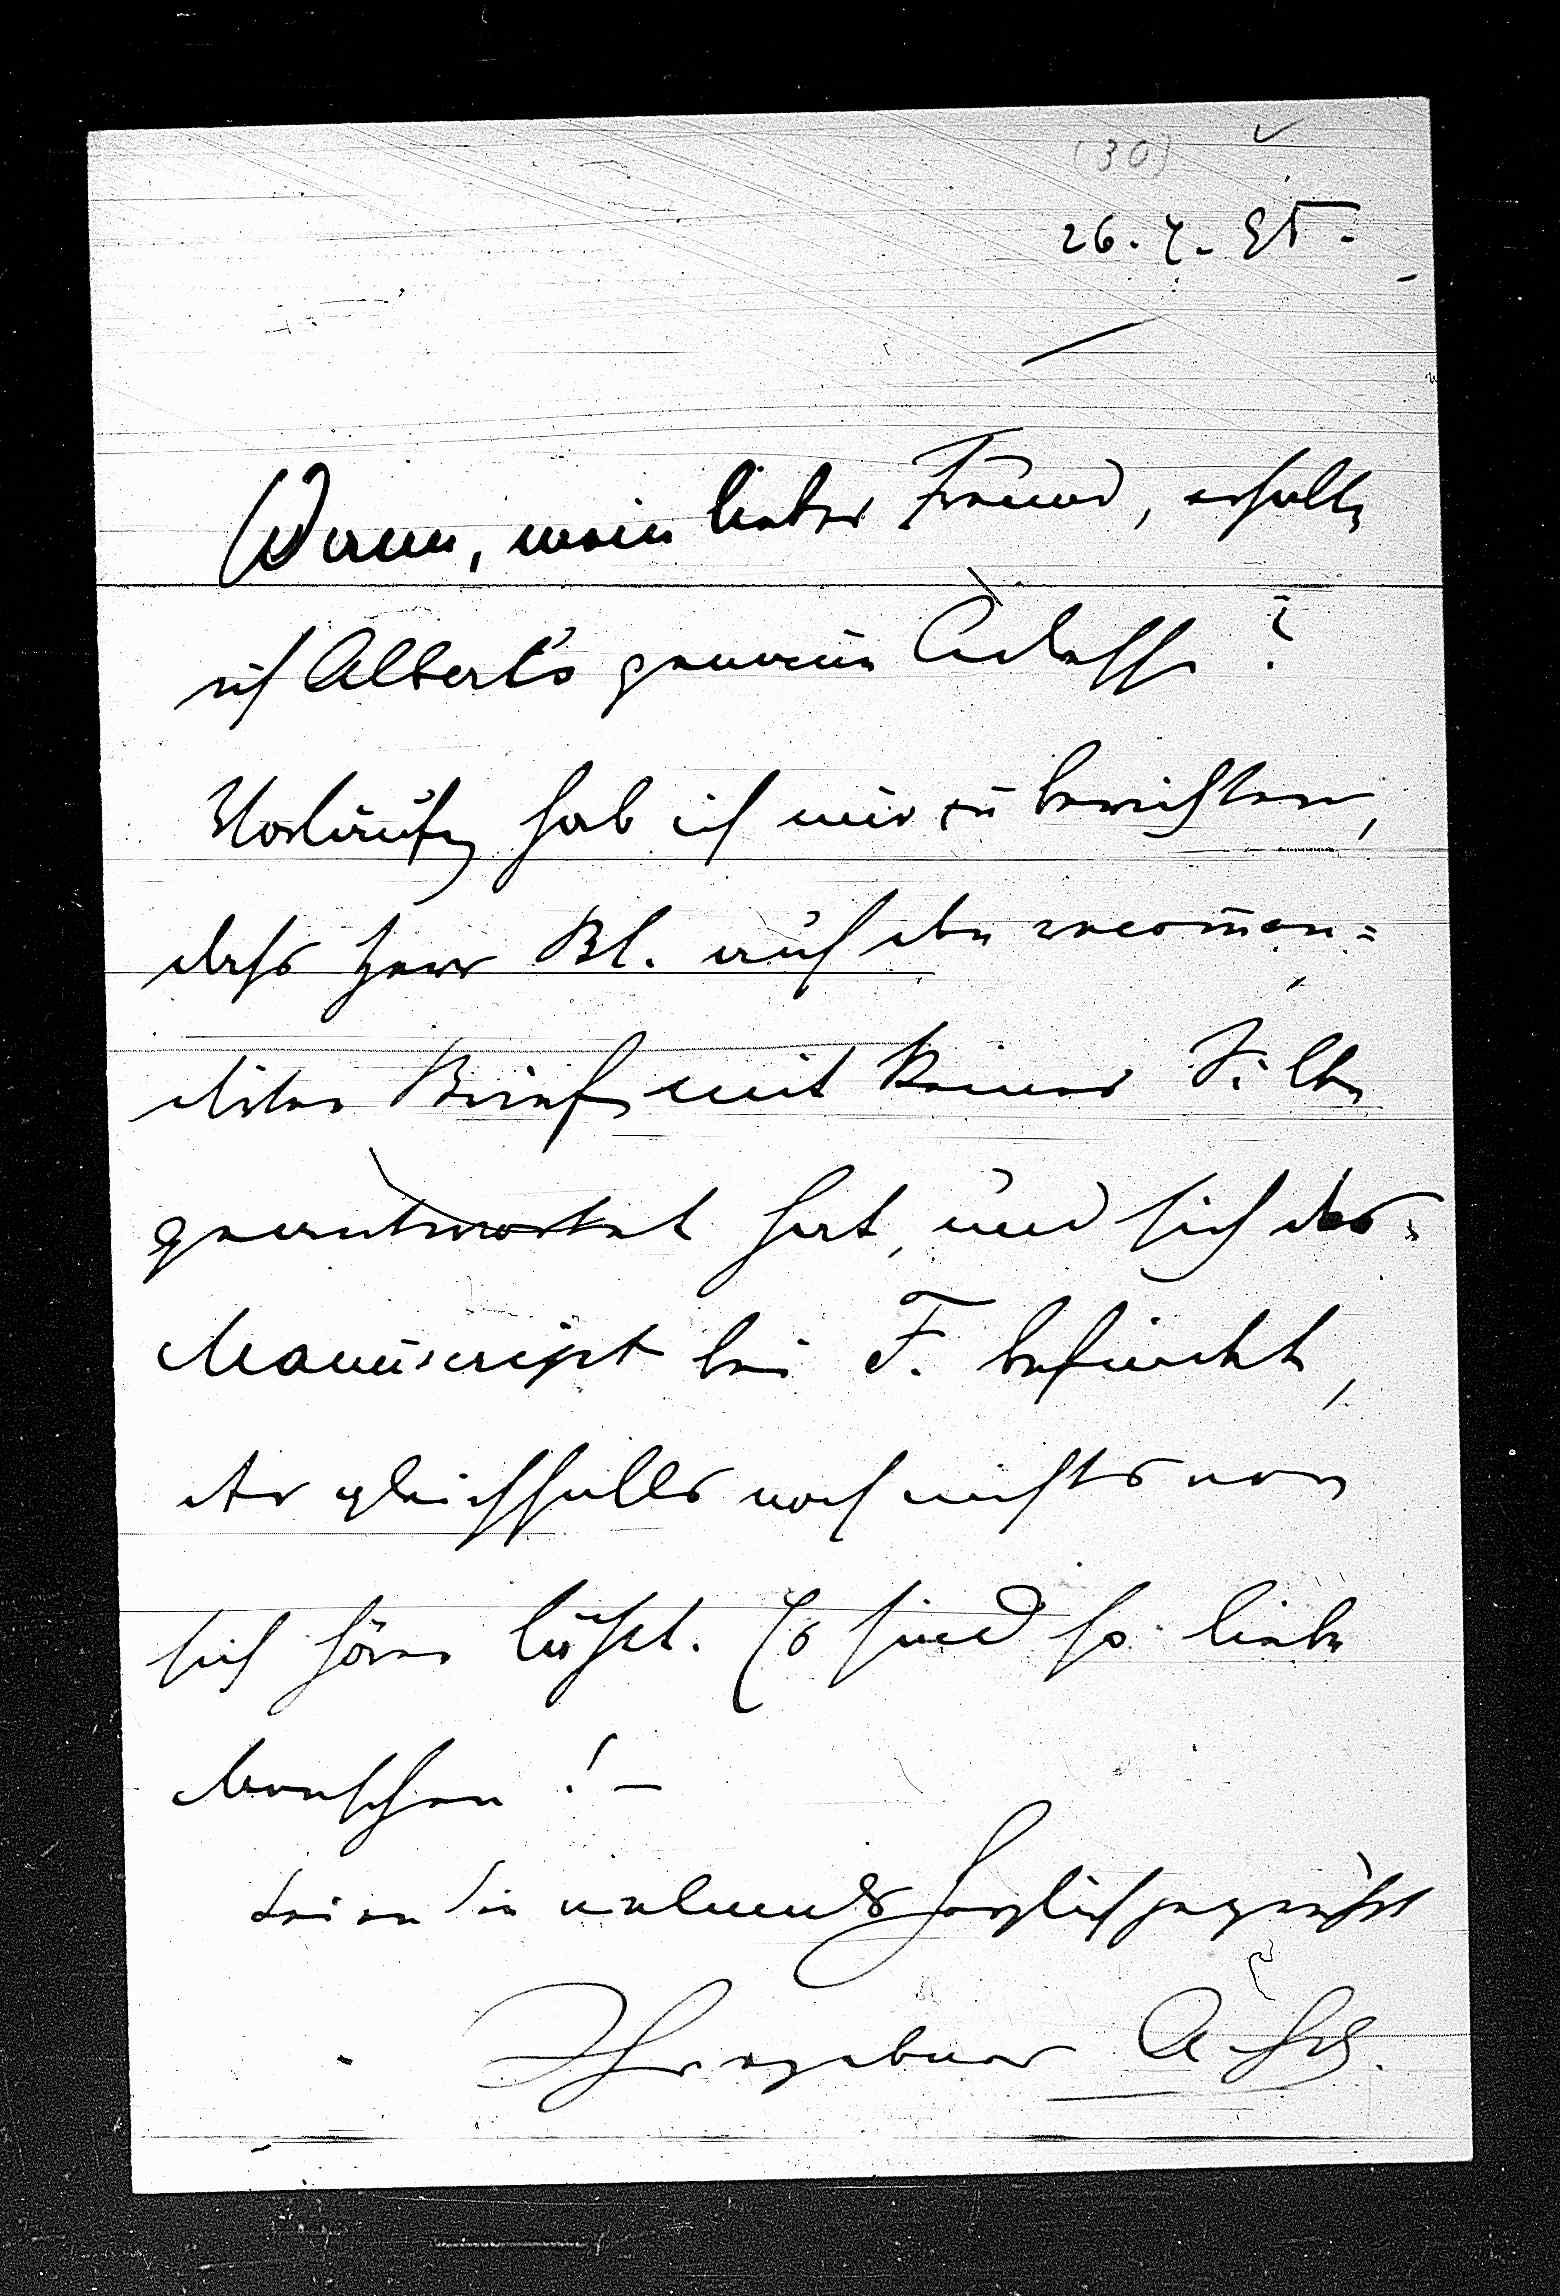 (30)
26. 4. 95.
Wann, mein lieber Freund, erhalte
ich Albert's genaue Adresse?
Vorläufig hab ich nur zu berichten,
dass Herr Bl. auf den recom̄an=
dirten Brief mit keiner Silbe
geantwortet hat, und sich das
Manuscript bei F. befindet,
der gleichfalls noch nichts von
sich hören läßt. Es sind so liebe
Menschen! –
Seien Sie vielmals herzlich gegrüßt
Ihr ergebener A. Sch.